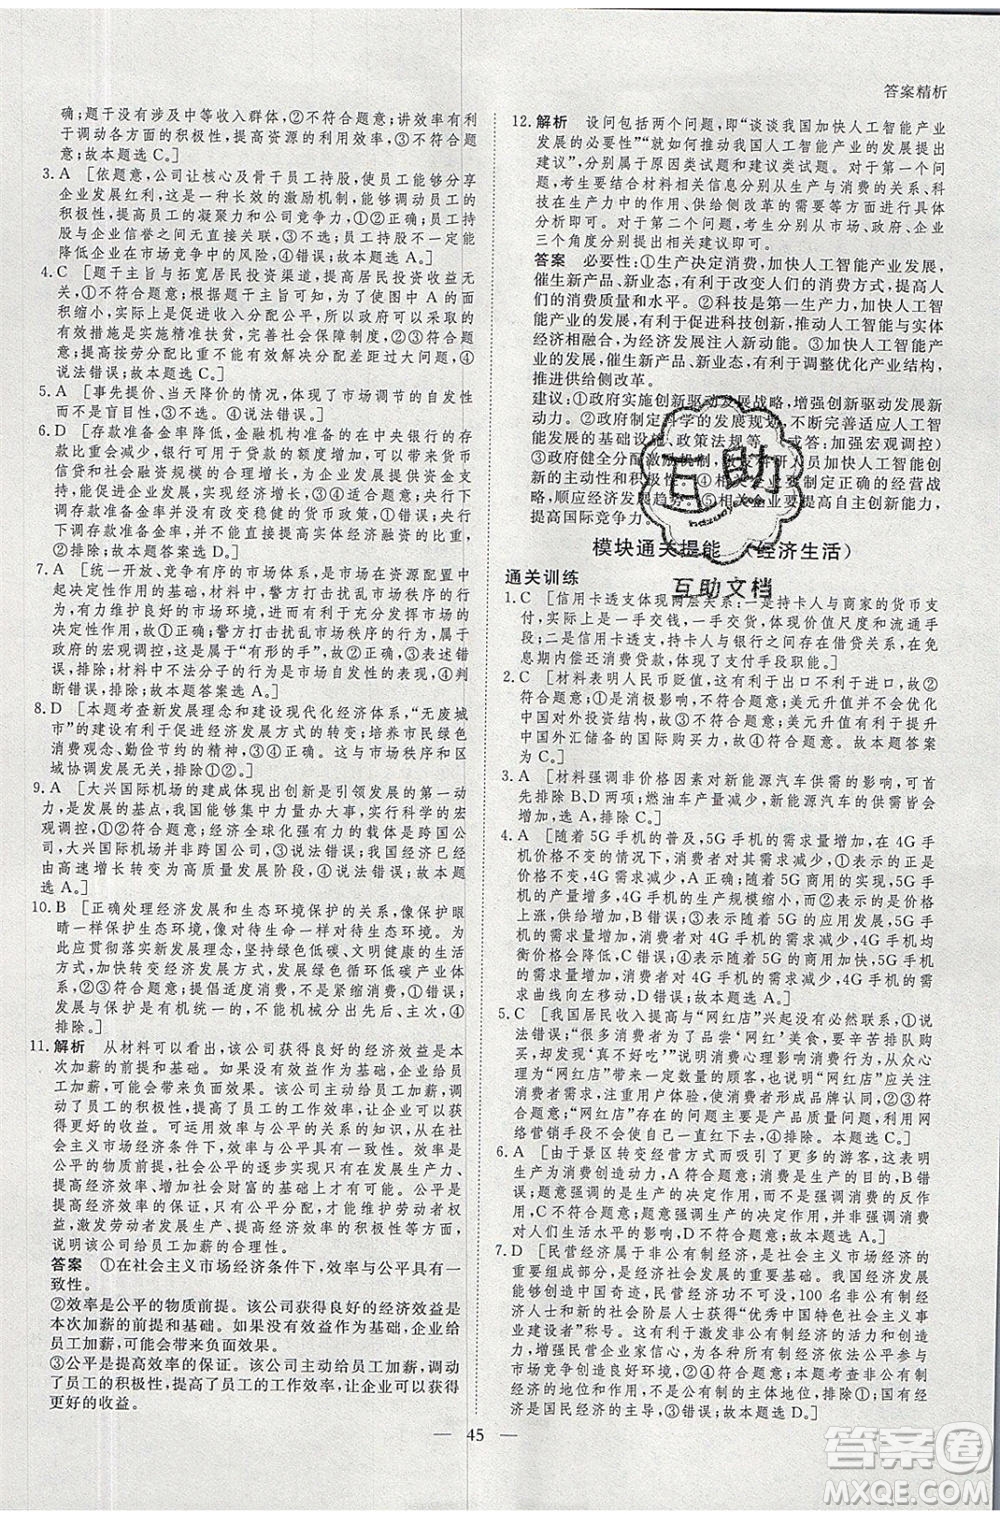 答案精析
确;题干没有涉及中等收入群体,②不符合题意;讲效率有利
于调动各方面的积极性,提高资源的利用效率,③不符合
题意;故本题选 C。]
3.A [依题意,公司让核心及骨干员工持股,使员工分享到
企业发展红利,这是一种长效的激励机制,能够调动员工的
积极性,提高员工的凝聚力和公司竞争力,①②正确;员工持
股与企业信誉之间无直接关联,③不选;员工持股不一定能
降低企业在市场竞争中的风险,④错误;故本题选 A。]
4.C [题干主旨与拓宽居民投资渠道,提高居民财产性收入
无关,①不符合题意;根据题干主旨可知,为了使图中 A 的面
积缩小,实际上是促进收入分配公平,所以政府可以采取的
有效措施是实施精准扶贫,完善社会保障制度,②③符合题
意;提高按劳分配的比重并不能解决分配差距过大问题,④
说法错误;故本题选 C。]
5.A [事先提价、当天降价的情况,体现了市场调节的自发性
而不是盲目性,③不选。④说法错误。]
6.D [存款准备金率降低,金融机构存在中央银行的存款
比重会减少,银行可用于贷款的额度增加,可以扩大货币信
贷和社会融资规模的合理增长,为企业发展提供资金支
持,实现经济增长,③④符合题意,可以入选;央行执行
下调存款准备金率并没有改变稳健的货币政策,①错误,
②排除;央行下调存款准备金率支持实体经济融资的比重增加,
②排除;故本题答案选 D。]
7.A [统一开放、竞争有序的市场体系是市场在资源配置中
起决定性作用的基础,材料中,警方打击扰乱市场秩序的行
为,营造良好的市场环境,①入选,有利于充分发挥市场
的决定性作用;警方打击扰乱市场秩序的行为,属于
政府的宏观调控,属于“有形的手”,②入选;③表述错
误,排除;材料中不法分子的行为与道德和自律有关,④
判断错误,排除;故本题答案选 A。]
8.D [本题考查新发展理念和建设现代化经济体系,“无废城
市”的建设有利于促进经济发展方式的转变;培养市民绿色
消费观念、勤俭节约的精神,③④正确。这与市场秩序和区
域协调发展无关,排除①②。]
9.A [大兴国际机场的建成体现出创新是引领发展的第一动
力,是发展的基点,我国能够集中力量办大事,实行科学的宏
观调控,①②符合题意;经济全球化强有力的载体是跨国公
司,大兴国际机场并非跨国公司,③说法错误;我国经济已经
由高速增长转变为高质量发展阶段,④说法错误;故本题
选 A。]
10.B [正确处理经济发展和生态环境保护的关系,像保护眼
睛一样保护生态环境,像对待生命一样对待生态环境,
为此应贯彻落实新发展理念,坚持绿色、文明健康的生活
方式,加快转变经济发展方式,发展绿色循环低碳产业体
系,②③符合题意;提倡适度消费,不是紧缩消费,①错误;
发展与保护是有机统一的,不能机械划分先后、主次,④
排除。]
11.解析 从材料可以看出,该公司获得良好的经济效益是
本次加薪的前提和基础。如果没有效益作为基础,企业给
员工加薪,可能带来负面效果。该公司主动给员工加薪,
调动了员工的积极性,提高了员工的工作效率,可让企业
获得更好的收益。可运用效率与公平关系的知识,从在
社会主义市场经济条件下,效率与公平具有一致性。效率
是公平的物质前提,公平的逐步实现只有在发展生产力、
提高经济效率、增加社会财富的基础上才可能。公平是
提高经济效率的保证,只有公平分配,才能维护劳动者权
益,激发劳动者发展生产、提高经济效率的积极性等方面,
说明该公司给员工加薪的合理性。
答案 ①在社会主义市场经济条件下,效率与公平具有一
致性。
②效率是公平的物质前提。该公司获得良好的经济效益是
本次加薪的前提和基础。如果没有效益作为基础,企业给
员工加薪,可能带来负面效果。
③公平是提高效率的保证。该公司主动给员工加薪,调动
了员工的积极性,提高了员工的工作效率,让企业可以获得
更好的收益。
12.解析 设问包括两个问题,即“谈谈我国加快人工智能产业
发展的必要性”“就如何推动我国人工智能产业的发展提出
建议”,分别属于原因类试题和建议类试题。对于第一个问
题,考生要结合材料相关信息分别从生产与消费的关系、科
技在生产力中的作用、供给侧改革的需要等方面进行分析
即可。对于第二个问题,考生要结合材料从市场、政府、企业
三个角度分别提出相关建议即可。
答案 必要性:①生产决定消费,加快人工智能产业发展,
催生新产品、新业态,有利于改变人们的消费方式,提高人
们的消费质量和水平。②科技是第一生产力,加快人工智
能产业的发展,有利于促进科技创新,推动人工智能与实体
经济相融合,为经济发展注入新动能。③加快人工智能产
业发展,催生新产品、新业态,有利于调整优化产业结构,
推进供给侧改革。
建议:①政府实施创新驱动发展战略,增强创新对发展的驱
动力。②政府制定科学的发展规划,不断完善适应人工智
能发展的基础设施、政策法规等。(或答:加强宏观调控)
③政府健全分配激励机制,激发科研人员加快人工智能产业
创新的主动性和积极性。④相关企业要制定正确的经营战
略,顺应经济发展趋势。⑤相关企业要提高自主创新能力,
提高国际竞争力。
模块通关提能 (经济生活)
通关训练
1.C [信用卡透支体现两层关系:一是持卡人与商家的货币支
付,实际上是一手交钱,一手交货,体现价值尺度和流通手
段职能;二是信用卡透支,持卡人与银行之间存在借贷关系,在免
息期内偿还消费贷款,体现了支付手段职能。]
2.C [材料表明人民币贬值,这有利于出口不利于进口,故②
符合题意,④不符合题意;①是消极影响,不符合题意;美元升值并不能优化
中国对外投资结构,③不符合题意;美元升值有利于提升
中国外汇储备的国际购买力,③符合题意。故本题答案
选 C。]
3.A [材料强调非价格因素对新能源汽车供需的影响,可首
先排除 B、D 两项;燃油车产量减少,新能源汽车的供需皆会
增加,C 错误,A 正确。]
4.A [随着 5G 手机的普及,5G 手机的需求量增加,在 4G 手
机价格不变的情况下,消费者对其需求减少,①表示的是这
一过程,正确;随着 5G 手机的需求增加,企业会增加 5G 手
机的产量增多,4G 手机的生产规模缩小,而不是 4G 手机价格
上涨,供给增加,②错误;③表示随着 5G 的应用发展,5G 手
机的需求量增加,4G 手机的需求量减少,4G 手机的均
衡价格会降低,符合题意;④表示随着 4G 手机价格上升,
消费者对 4G 手机的需求减少,这时 4G 手机的
需求曲线不变,④错误;故本题选 A。]
5.C [我国居民收入提高与“网红店”兴起没有必然联系,①
说法错误;“很多消费者为了品尝‘网红’美食,愿意排队
购买,买到后却发现‘真有那么好吃吗’”,说明消费心理影响消费行为,
对“网红店”带来一定数量的顾客,②符合题意;“网红店”应关注
消费者需求,注重用户体验,使消费者形成品牌认同,③
符合题意;“网红店”存在的问题主要是产品质量,利用网
络营销手段不会直接下降,④排除。本题选 C。]
6.A [由于景区转变经营方式而吸引了更多的游客,这说明
生产为消费创造动力,A 符合题意;B 强调消费对生产的反作用,
不符合题意;题意强调的是生产的决定作用,C 不符合题意;D 强调消费
对人们生活水平的影响,不符合题意。]
7.D [民营经济属于非公有制经济,是社会主义市场经济的
重要组成部分,是我国经济社会发展的重要基础。为了
实现中国奇迹,民营经济发挥了重要作用,100 名非公有制
经济人士和新的社会阶层人士获“优秀中国特色社会主义事
业建设者”称号。有利于激发非公有制经济的活力和创造力,
鼓励民营企业家创新创业,为非公有制经济依法平等参与
市场竞争创造良好环境,②④符合题意;本题考查非公有制
经济的地位和作用,不是公有制的主体地位,排除①;国有经
济是国民经济的主导力量,③错误;故本题选 D。]
互助
hdzuoye
互助文档
45
答案卷
MXQE.COM